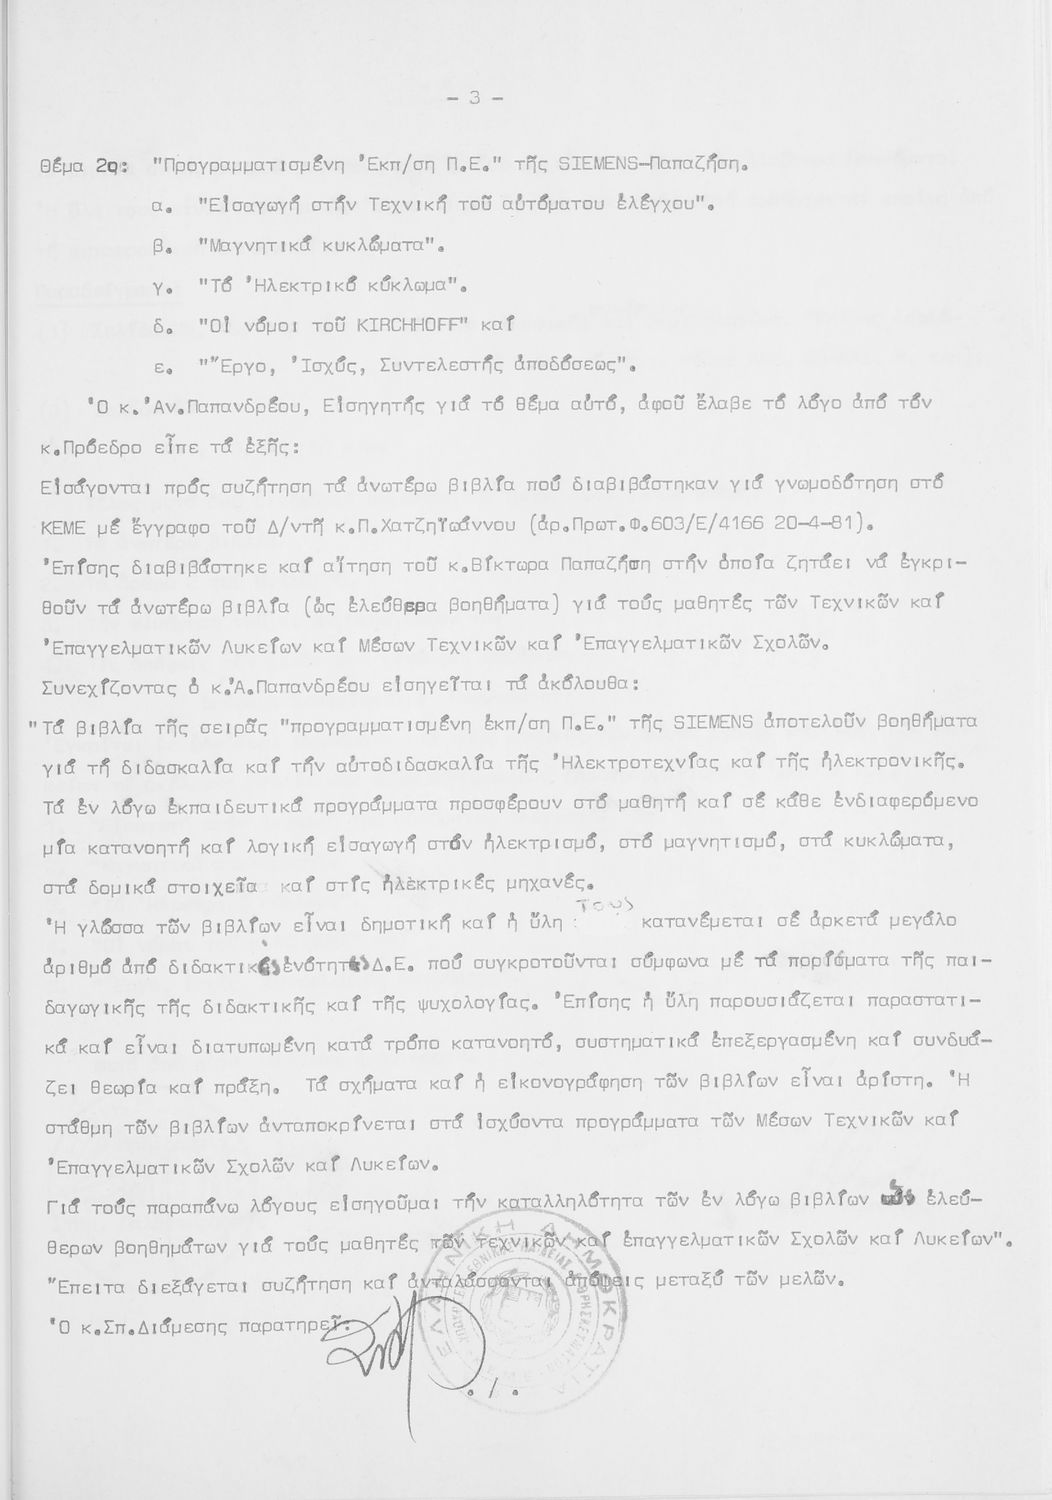 - 3 -
Θέμα 2ο: "Προγραμματισμένη Ἐκπ/ση Π.Ε." τῆς SIEMENS-Παπαζήση.
α. "Εἰσαγωγή στήν Τεχνική τοῦ αὐτόματου ἐλέγχου".
β. "Μαγνητικά κυκλώματα".
γ. "Τό Ἠλεκτρικό κύκλωμα".
δ. "Οἱ νόμοι τοῦ KIRCHHOFF" καί
ε. "Ἔργο, Ἰσχύς, Συντελεστής ἀποδόσεως".
Ὁ κ. Ἀν.Παπανδρέου, Εἰσηγητής γιά τό θέμα αὐτό, ἀφοῦ ἔλαβε τό λόγο ἀπό τόν
κ.Πρόεδρο εἶπε τά ἑξῆς:
Εἰσάγονται πρός συζήτηση τά ἀνωτέρω βιβλία πού διαβιβάστηκαν γιά γνωμοδότηση στό
ΚΕΜΕ μέ ἔγγραφο τοῦ Δ/ντῆ κ.Π.Χατζηϊωάννου (ἀρ.Πρωτ.Φ.603/Ε/4166 20-4-81).
Ἐπίσης διαβιβάστηκε καί αἴτηση τοῦ κ.Βίκτωρα Παπαζήση στήν ὁποία ζητάει νά ἐγκρι-
θοῦν τά ἀνωτέρω βιβλία (ὡς ἐλεύθερα βοηθήματα) γιά τούς μαθητές τῶν Τεχνικῶν καί
Ἐπαγγελματικῶν Λυκείων καί Μέσων Τεχνικῶν καί Ἐπαγγελματικῶν Σχολῶν.
Συνεχίζοντας ὁ κ.Ἀ.Παπανδρέου εἰσηγεῖται τά ἀκόλουθα:
"Τά βιβλία τῆς σειρᾶς "προγραμματισμένη ἐκπ/ση Π.Ε." τῆς SIEMENS ἀποτελοῦν βοηθήματα
γιά τή διδασκαλία καί τήν αὐτοδιδασκαλία τῆς Ἠλεκτροτεχνίας καί τῆς ἠλεκτρονικῆς.
Τά ἐν λόγω ἐκπαιδευτικά προγράμματα προσφέρουν στό μαθητή καί σέ κάθε ἐνδιαφερόμενο
μία κατανοητή καί λογική εἰσαγωγή στόν ἠλεκτρισμό, στό μαγνητισμό, στά κυκλώματα,
στά δομικά στοιχεῖα καί στίς ἠλεκτρικές μηχανές.
Ἡ γλῶσσα τῶν βιβλίων εἶναι δημοτική καί ἡ ὕλη τους κατανέμεται σέ ἀρκετά μεγάλο
ἀριθμό ἀπό διδακτικές ἑνότητες Δ.Ε. πού συγκροτοῦνται σύμφωνα μέ τά πορίσματα τῆς παι-
δαγωγικῆς τῆς διδακτικῆς καί τῆς ψυχολογίας. Ἐπίσης ἡ ὕλη παρουσιάζεται παραστατι-
κά καί εἶναι διατυπωμένη κατά τρόπο κατανοητό, συστηματικά ἐπεξεργασμένη καί συνδυά-
ζει θεωρία καί πράξη. Τά σχήματα καί ἡ εἰκονογράφηση τῶν βιβλίων εἶναι ἀρίστη. Ἡ
στάθμη τῶν βιβλίων ἀνταποκρίνεται στά ἰσχύοντα προγράμματα τῶν Μέσων Τεχνικῶν καί
Ἐπαγγελματικῶν Σχολῶν καί Λυκείων.
Γιά τούς παραπάνω λόγους εἰσηγοῦμαι τήν καταλληλότητα τῶν ἐν λόγω βιβλίων ὡς ἐλεύ-
θερων βοηθημάτων γιά τούς μαθητές τῶν τεχνικῶν καί ἐπαγγελματικῶν Σχολῶν καί Λυκείων".
Ἔπειτα διεξάγεται συζήτηση καί ἀνταλάσσονται ἀπόψεις μεταξύ τῶν μελῶν.
Ὁ κ.Σπ.Διάμεσης παρατηρεῖ:
ΕΛΛΗΝΙΚΗ ΔΗΜΟΚΡΑΤΙΑ
./.